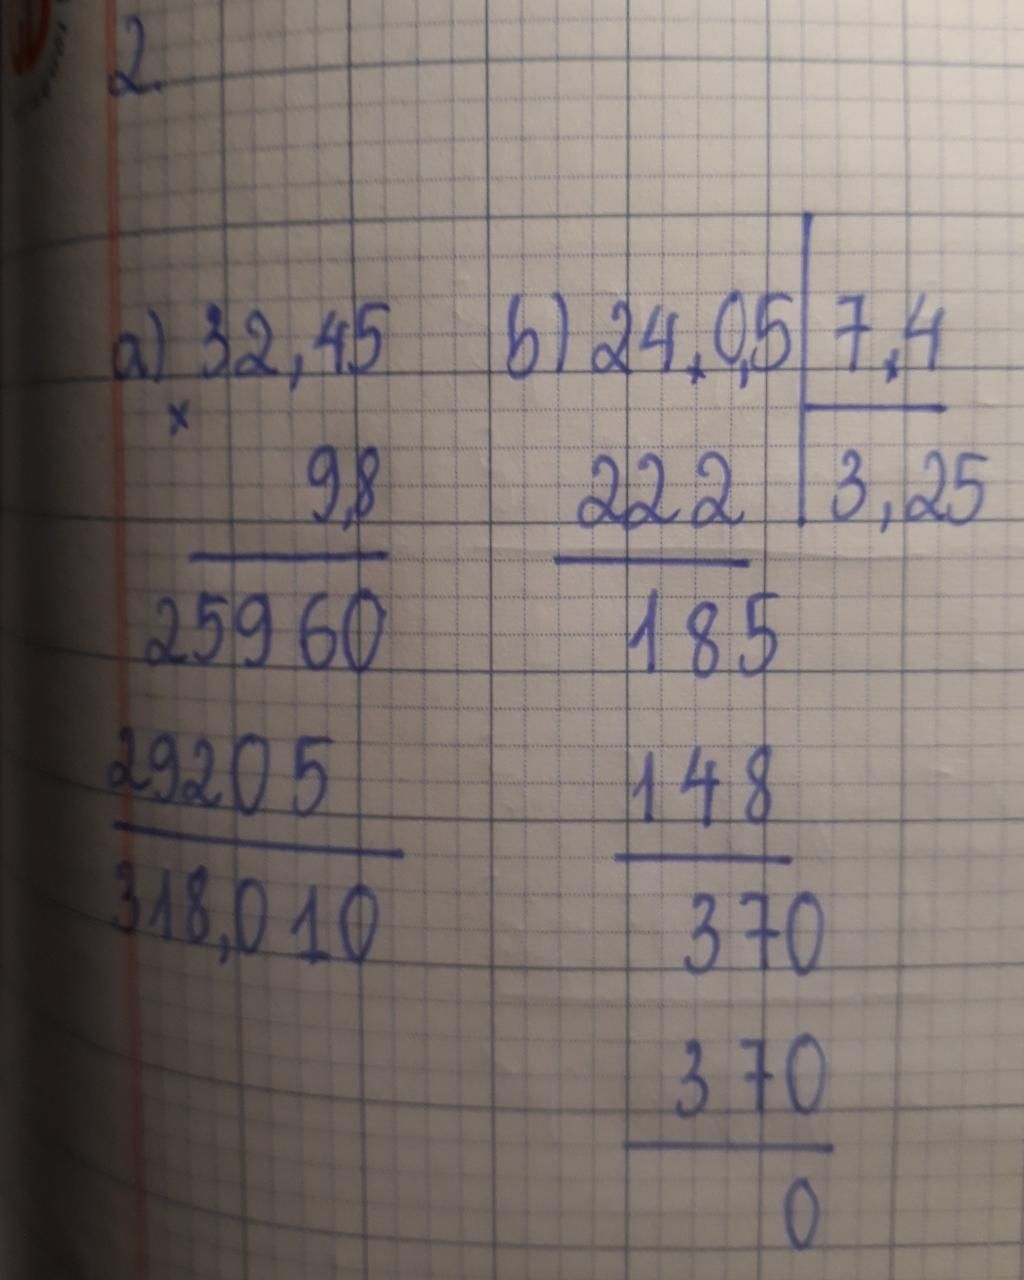 2.
a) 32,45
×
9,8
25960
29205
318,010
b) 24,0,5 | 7,4
222 | 3,25
185
148
370
370
0